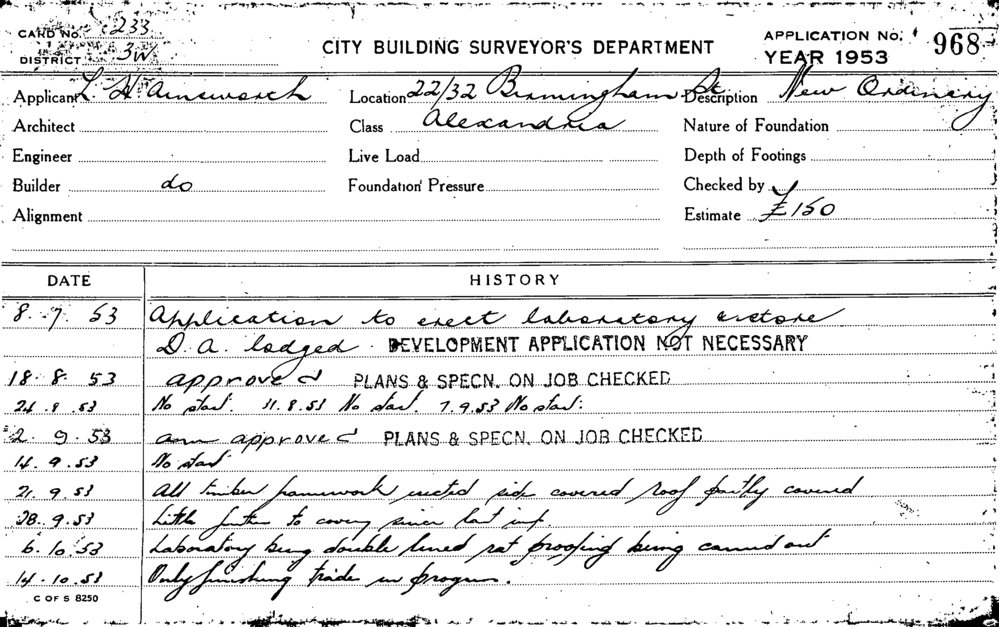 CARD No. 233
DISTRICT 3W
CITY BUILDING SURVEYOR'S DEPARTMENT
APPLICATION No. 968
YEAR 1953
Applicant L H Ainsworth Location 22/32 Birmingham St Description New Ordinary
Architect Class Alexandria Nature of Foundation
Engineer Live Load Depth of Footings
Builder do Foundation Pressure Checked by
Alignment Estimate £150
DATE HISTORY
8. 7. 53 Application to erect laboratory & store
D. A. lodged. DEVELOPMENT APPLICATION NOT NECESSARY
18. 8. 53 approved PLANS & SPECN. ON JOB CHECKED
24. 8. 53 No start. 31.8.53 No start. 7.9.53 No start.
2. 9. 53 approved PLANS & SPECN. ON JOB CHECKED
14. 9. 53 No start
21. 9. 53 All timber framework erected side covered roof partly covered
28. 9. 53 Little further to covering since last insp.
6. 10. 53 Laboratory being double lined rat proofing being carried out
14. 10. 53 Only finishing trades in progress.
C OF S 8250